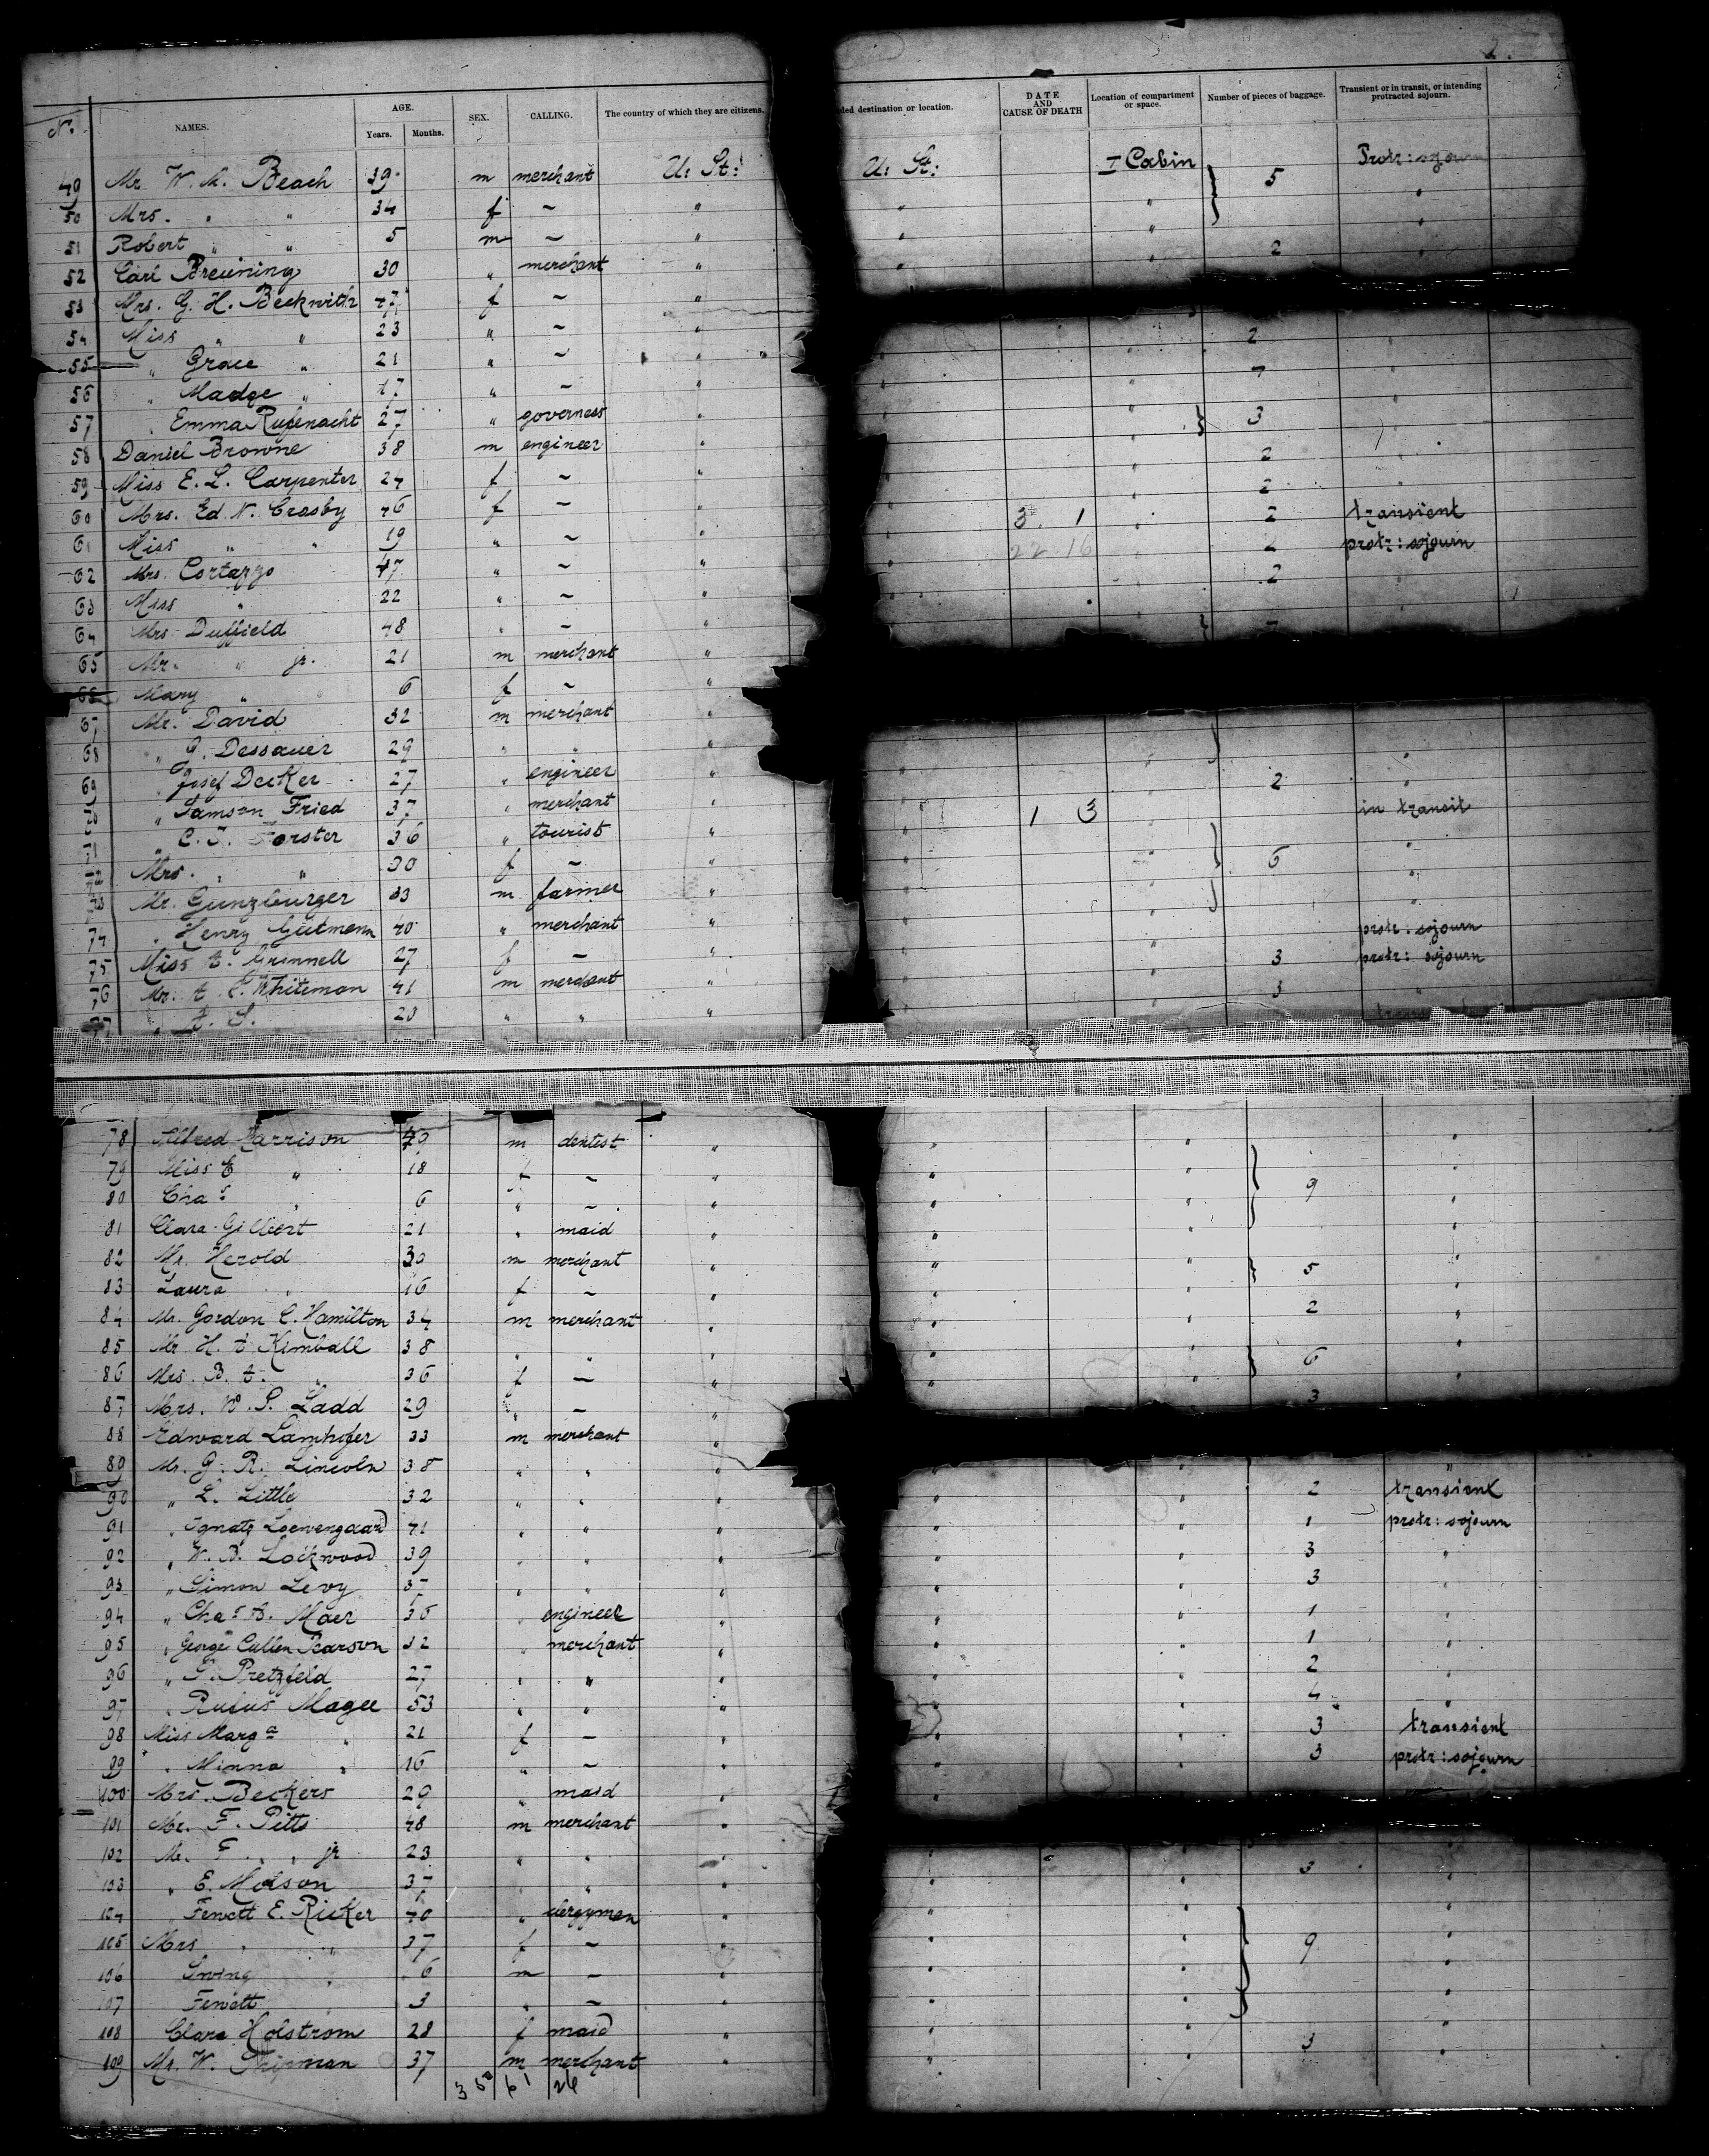 2.
No. NAMES. AGE. Years. Months. SEX. CALLING. The country of which they are citizens. ded destination or location. DATE AND CAUSE OF DEATH Location of compartment or space. Number of pieces of baggage. Transient or in transit, or intending protracted sojourn.
49 Mr. W. M. Beach 39 m merchant U. St: U. St: I Cabin 5 Protr: sojourn
50 Mrs. " " 34 f ~ " " " "
51 Robert " " 5 m ~ " " " "
52 Carl Breuning 30 " merchant " " " 2 "
53 Mrs. G. H. Beckwith 47 f ~ "
54 Miss " " 23 " ~ " 2 "
55 " Grace " 21 " ~ " " 7 "
56 " Madge " 17 " ~ "
57 " Emma Rufenacht 27 " governess " " 3 "
58 Daniel Browne 38 m engineer " " 2 "
59 Miss E. L. Carpenter 24 f ~ " " 2 "
60 Mrs. Ed. N. Crosby 46 f ~ " 3. 1 " 2 transient
61 Miss " " 19 " ~ " 22 16 " 2 protr: sojourn
62 Mrs. Cortazzo 47 " ~ " 2 "
63 Miss " 22 " ~ "
64 Mrs. Duffield 48 " ~ "
65 Mr. " jr. 21 m merchant "
66 Mary " 6 f ~ "
67 Mr. David 32 m merchant "
68 " G. Dessauer 29 " " " "
69 " Josef Decker 27 " engineer " " 2 "
70 " Samson Fried 37 " merchant " 1 3 in transit
71 " C. T. Forster 36 " tourist " " 6 "
72 Mrs. " " 30 f ~ " " "
73 Mr. Gunzburger 33 m farmer " " "
74 " Henry Gutmann 40 " merchant " protr: sojourn
75 Miss A. Grinnell 27 f ~ " " 3 protr: sojourn
76 Mr. A. Whiteman 41 m merchant " " 3 "
77 " A. S. 23 " " "
78 Alfred Harrison 49 m dentist " " " "
79 Miss E " 18 f ~ " " "
80 Chas " 6 " ~ " " " 9 "
81 Clara Gilbert 21 " maid " " "
82 Mr. Herold 30 m merchant " " " 5 "
83 Laura " 16 f ~ " " " "
84 Mr. Gordon C. Hamilton 34 m merchant " " " 2 "
85 Mr H. A. Kimball 38 " " " " " 6 "
86 Mrs. B. A. " 36 f ~ " " "
87 Mrs. W. S. Ladd 29 " ~ " 3
88 Edward Lamhofer 33 m merchant "
89 Mr. G. R. Lincoln 38 " " " " " "
90 " L. Little 32 " " " " " 2 transient
91 " Ignatz Loewengaard 41 " " " " " 1 protr: sojourn
92 " W. B. Lockwood 39 " " " " " 3 "
93 " Simon Levy 37 " " " " " 3 "
94 " Chas A. Maer 36 " engineer " " " 1 "
95 " George Cullen Pearson 32 " merchant " " " 1 "
96 " S. Pretzfeld 27 " " " " " 2 "
97 " Rufus Magee 53 " " " " " 4 "
98 Miss Marga " 21 f ~ " " " 3 transient
99 " Minna " 16 " ~ " " " 3 protr: sojourn
100 Mrs. Beckers 29 " maid "
101 Mr. F. Pitts 48 m merchant "
102 Mr. F. " jr 23 " " " " " 3 "
103 " E. Molson 37 " " " " " "
104 " Fewett E. Ricker 40 " clergyman " " " "
105 Mrs " " 37 f ~ " " " 9 "
106 Irving " 6 m ~ " " " "
107 Fewett " 3 " ~ " " " "
108 Clara Holstrom 28 f maid " " " 3 "
109 Mr. W. Shipman 37 m merchant " " " "
61 26